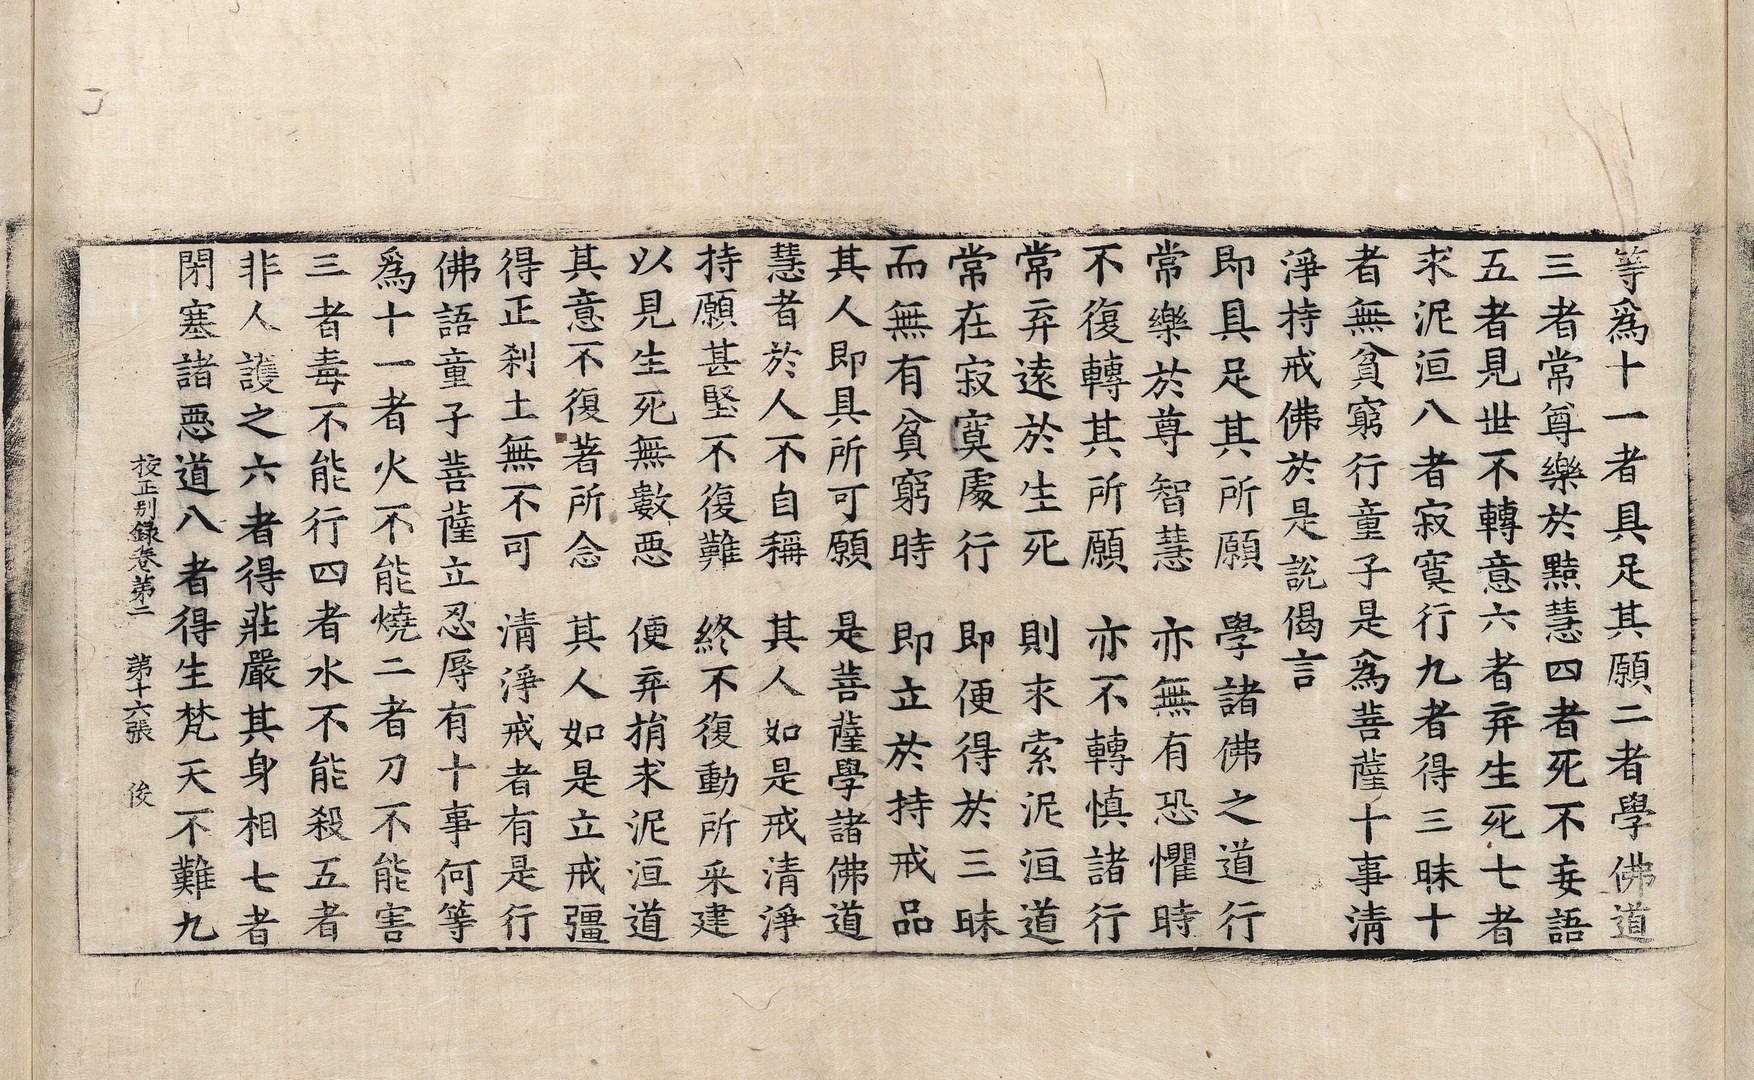 等為十一者具足其願二者學佛道
三者常尊樂於黠慧四者死不妄語
五者見世不轉意六者弃生死七者
求泥洹八者寂寞行九者得三昧十
者無貧窮行童子是為菩薩十事清
淨持戒佛於是說偈言
即具足其所願　學諸佛之道行
常樂於尊智慧　亦無有恐懼時
不復轉其所願　亦不轉慎諸行
常弃遠於生死　則求索泥洹道
常在寂寞處行　即便得於三昧
而無有貧窮時　即立於持戒品
其人即具所可願　是菩薩學諸佛道
慧者於人不自稱　其人如是戒清淨
持願甚堅不復難　終不復動所采建
以見生死無數惡　便弃捐求泥洹道
其意不復著所念　其人如是立戒彊
得正刹土無不可　清淨戒者有是行
佛語童子菩薩立忍辱有十事何等
為十一者火不能燒二者刀不能害
三者毒不能行四者水不能殺五者
非人護之六者得莊嚴其身相七者
閉塞諸惡道八者得生梵天不難九
挍正別錄卷第二　第十六張　俊